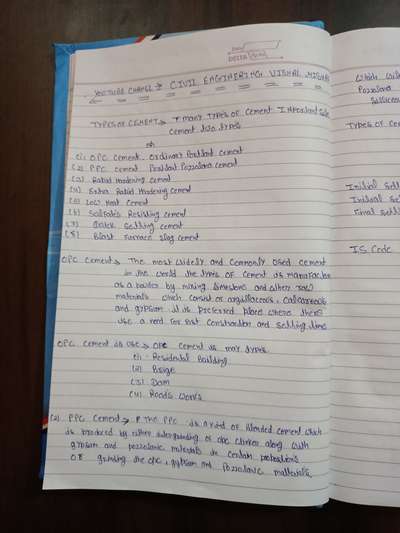 DATE
YOUTUBE CHANEL → CIVIL ENGINEERING VISHAL
TYPES OF CEMENT → * many TYPES of Cement Important
Cement 
(1) OPC Cement, Ordinary Portlant cement
(2) PPC Cement Portlant Pozzolana cement
(3) Rabid Hardening Cement
(4) Extra Rabid Hardening cement
(5) Low Heat Cement
(6) Salfate Resisting cement
(7) Quick Setting cement
(8) Blast Furnace Slag cement
OPC Cement → The most widely and Commonly Used Cement
in the world the types of Cement is
as a by mining limestone and other raw
materials which consist of argillaceous, Calcareous
and gypsum it is preferred place where there
use a need for fast Construction and setting time
OPC Cement is Use → OPC Cement is
(1) Residental Building
(2)
(3) Dam
(4) Roads Works
(2) PPC Cement → * The PPC is a kind of blended cement which
is produced by either intergrinding of OPC clinker along with
gypsum and pozzolanic materials in certain
OR grinding the OPC, gypsum and Pozzolanic
which
Pozzolana
TYPES OF
Initial
Initial
Final
IS Code